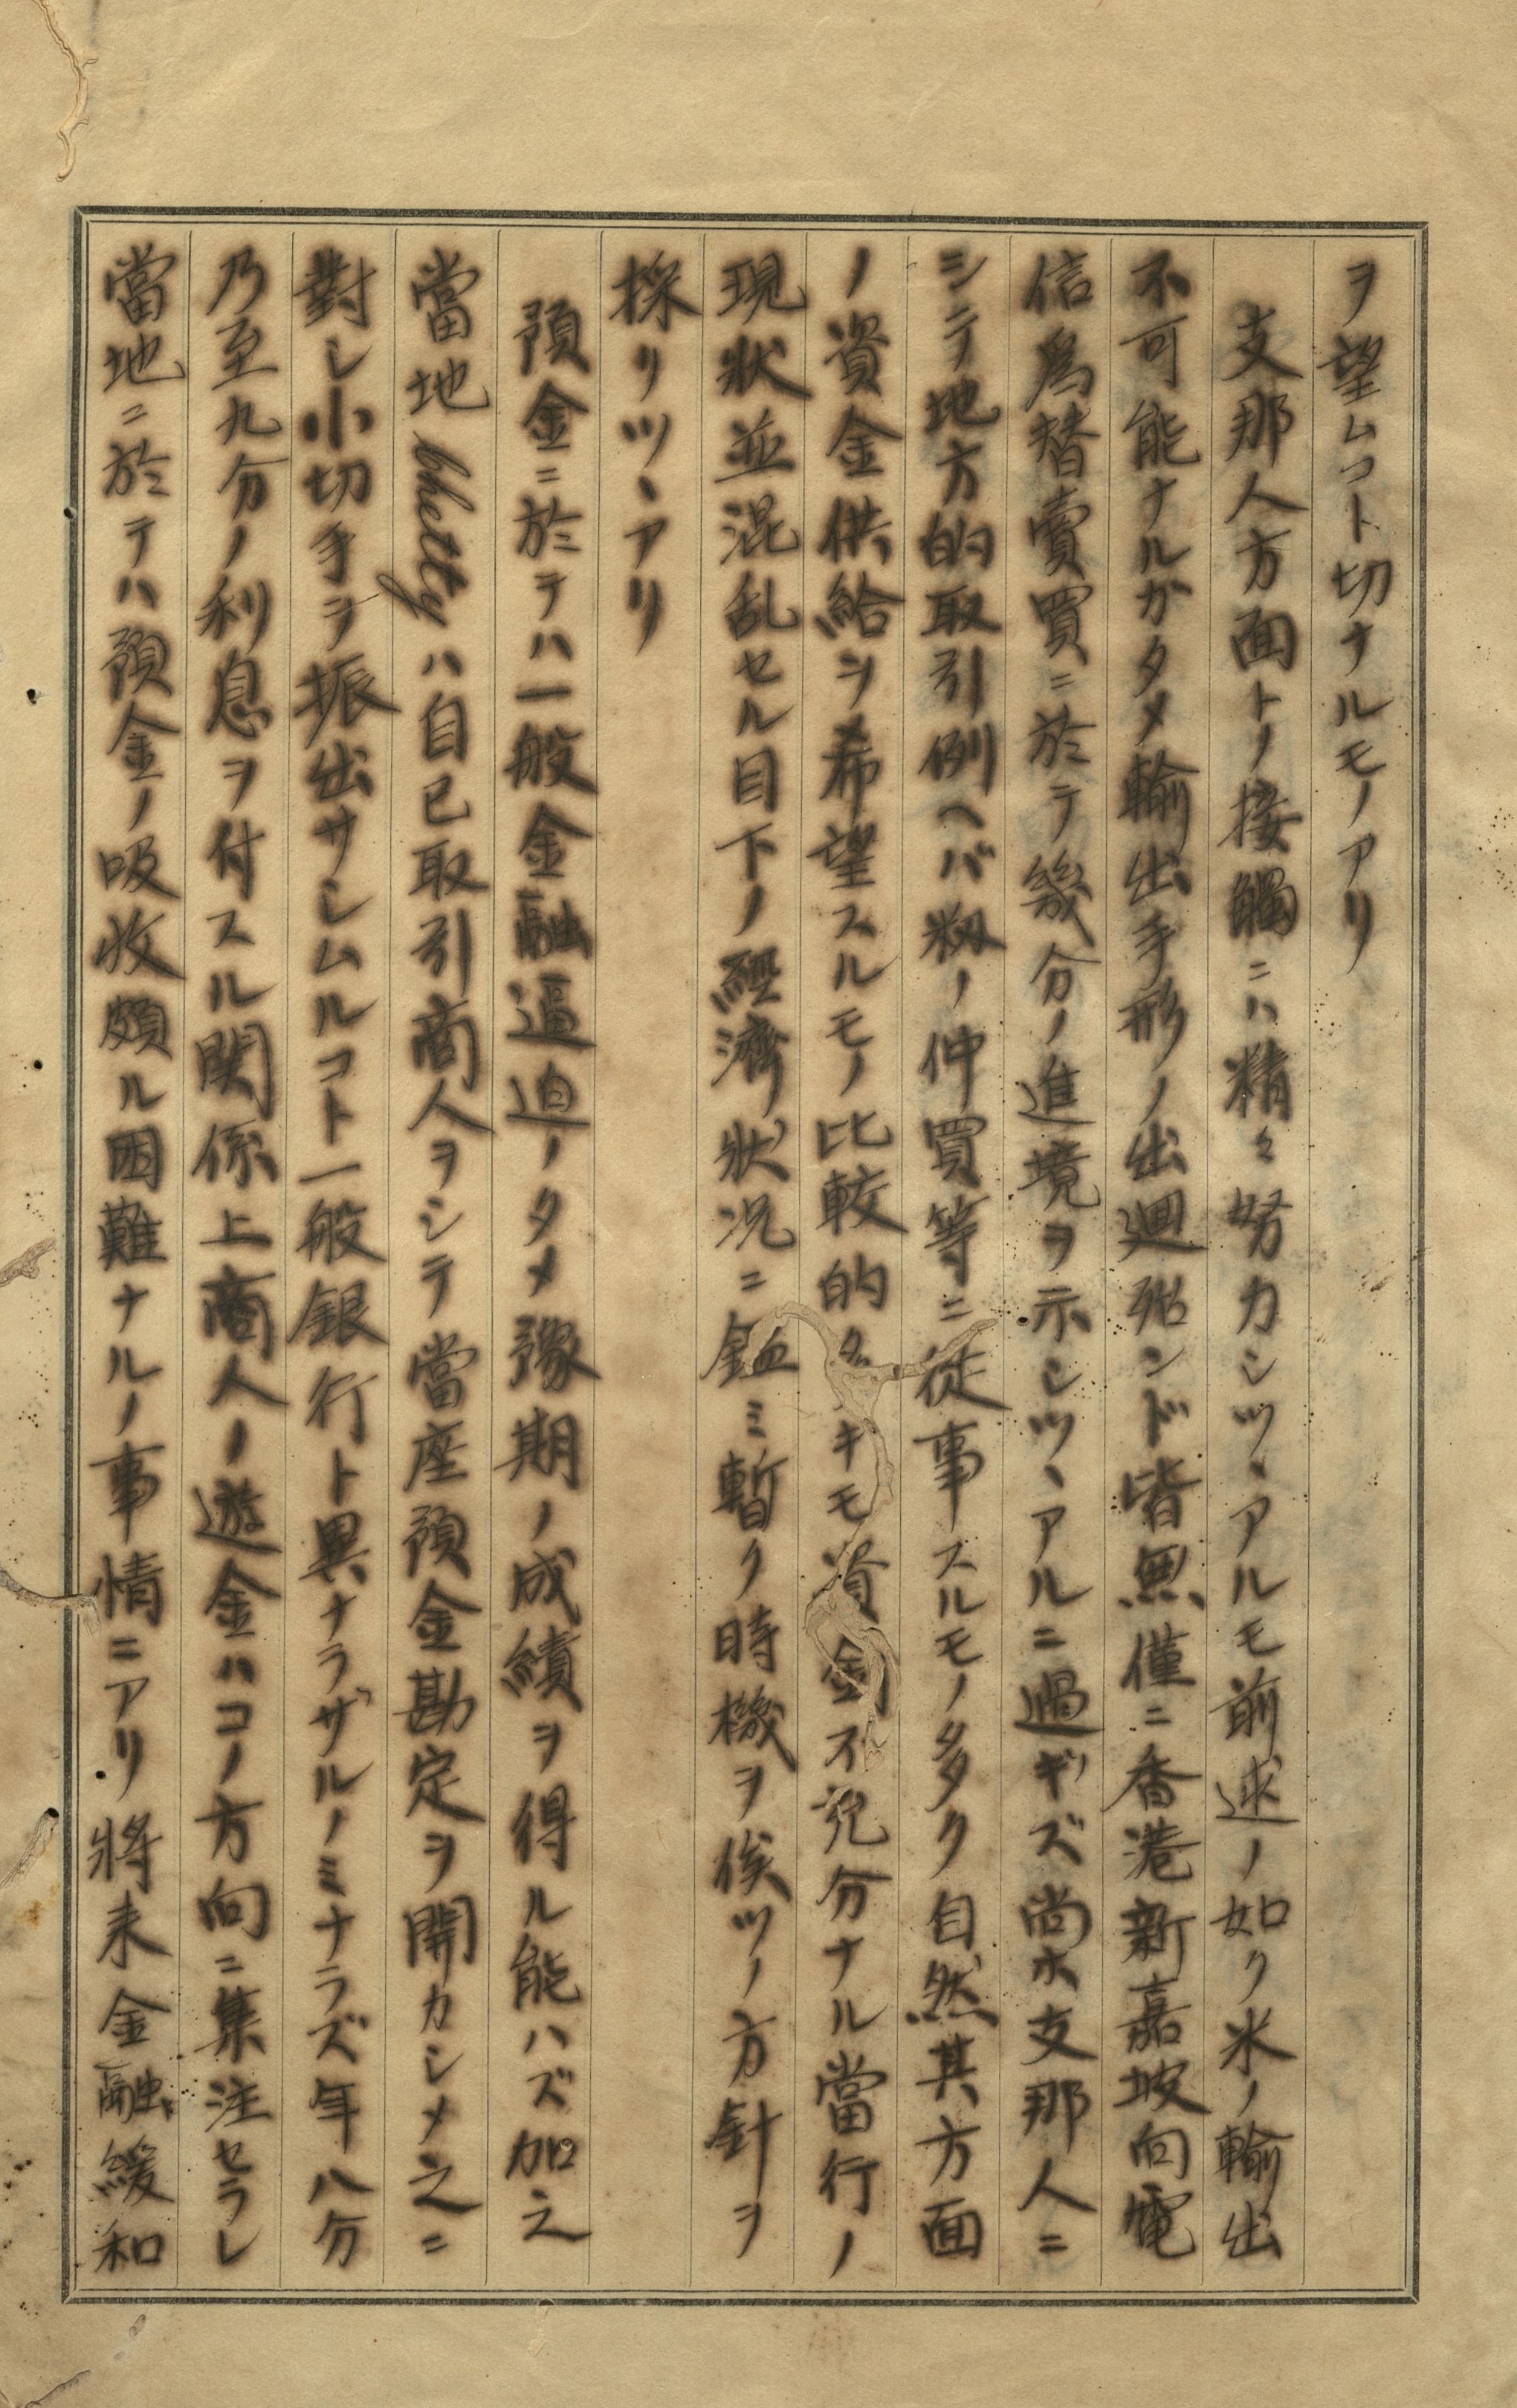 ヲ望ムコト切ナルモノアリ
支那人方面トノ接觸ニハ精々努力シツヽアルモ前述ノ如ク米ノ輸出
不可能ナルガタメ輸出手形ノ出廻殆ンド皆無僅ニ香港新嘉坡向電
信爲替賣買ニ於テ幾分ノ進境ヲ示シツヽアルニ過ギズ尚ホ支那人ニ
シテ地方的取引例ヘバ籾ノ仲買等ニ從事スルモノ多ク自然其方面
ノ資金供給ヲ希望スルモノ比較的多キモ資金不充分ナル當行ノ
現狀並混乱セル目下ノ經濟狀況ニ鑑ミ暫ク時機ヲ俟ツノ方針ヲ
採リツヽアリ
預金ニ於テハ一般金融逼迫ノタメ豫期ノ成績ヲ得ル能ハズ加之
當地 Chettyハ自己取引商人ヲシテ當座預金勘定ヲ開カシメ之ニ
對シ小切手ヲ振出サシムルコト一般銀行ト異ナラザルノミナラズ年八分
乃至九分ノ利息ヲ付スル関係上商人ノ遊金ハコノ方向ニ集注セラレ
當地ニ於テハ預金ノ吸收頗ル困難ナルノ事情ニアリ將来金融緩和